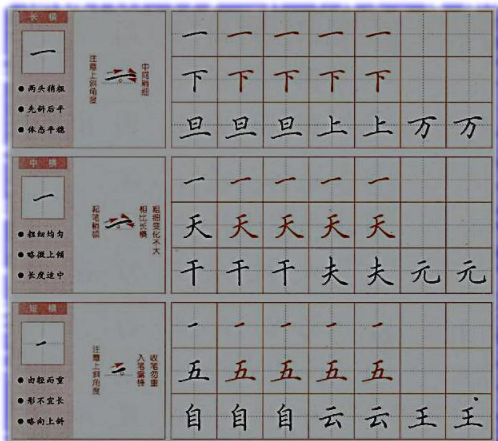 长横
一
● 两头稍粗
● 先斜后平
● 体态平稳
注意上斜角度
中间稍细
一 一 一 一 一
下 下 下 下 下
旦 旦 旦 上 上 万 万
中横
一
● 粗细均匀
● 略微上倾
● 长度适中
起笔稍顿
粗细变化不大
相比长横
一 一 一 一 一
天 天 天 天 天
干 干 干 夫 夫 元 元
短横
一
● 由轻而重
● 形不宜长
● 略向上斜
注意上斜角度
收笔勿重
入笔露锋
一 一 一 一 一
五 五 五 五 五
自 自 自 云 云 王 王